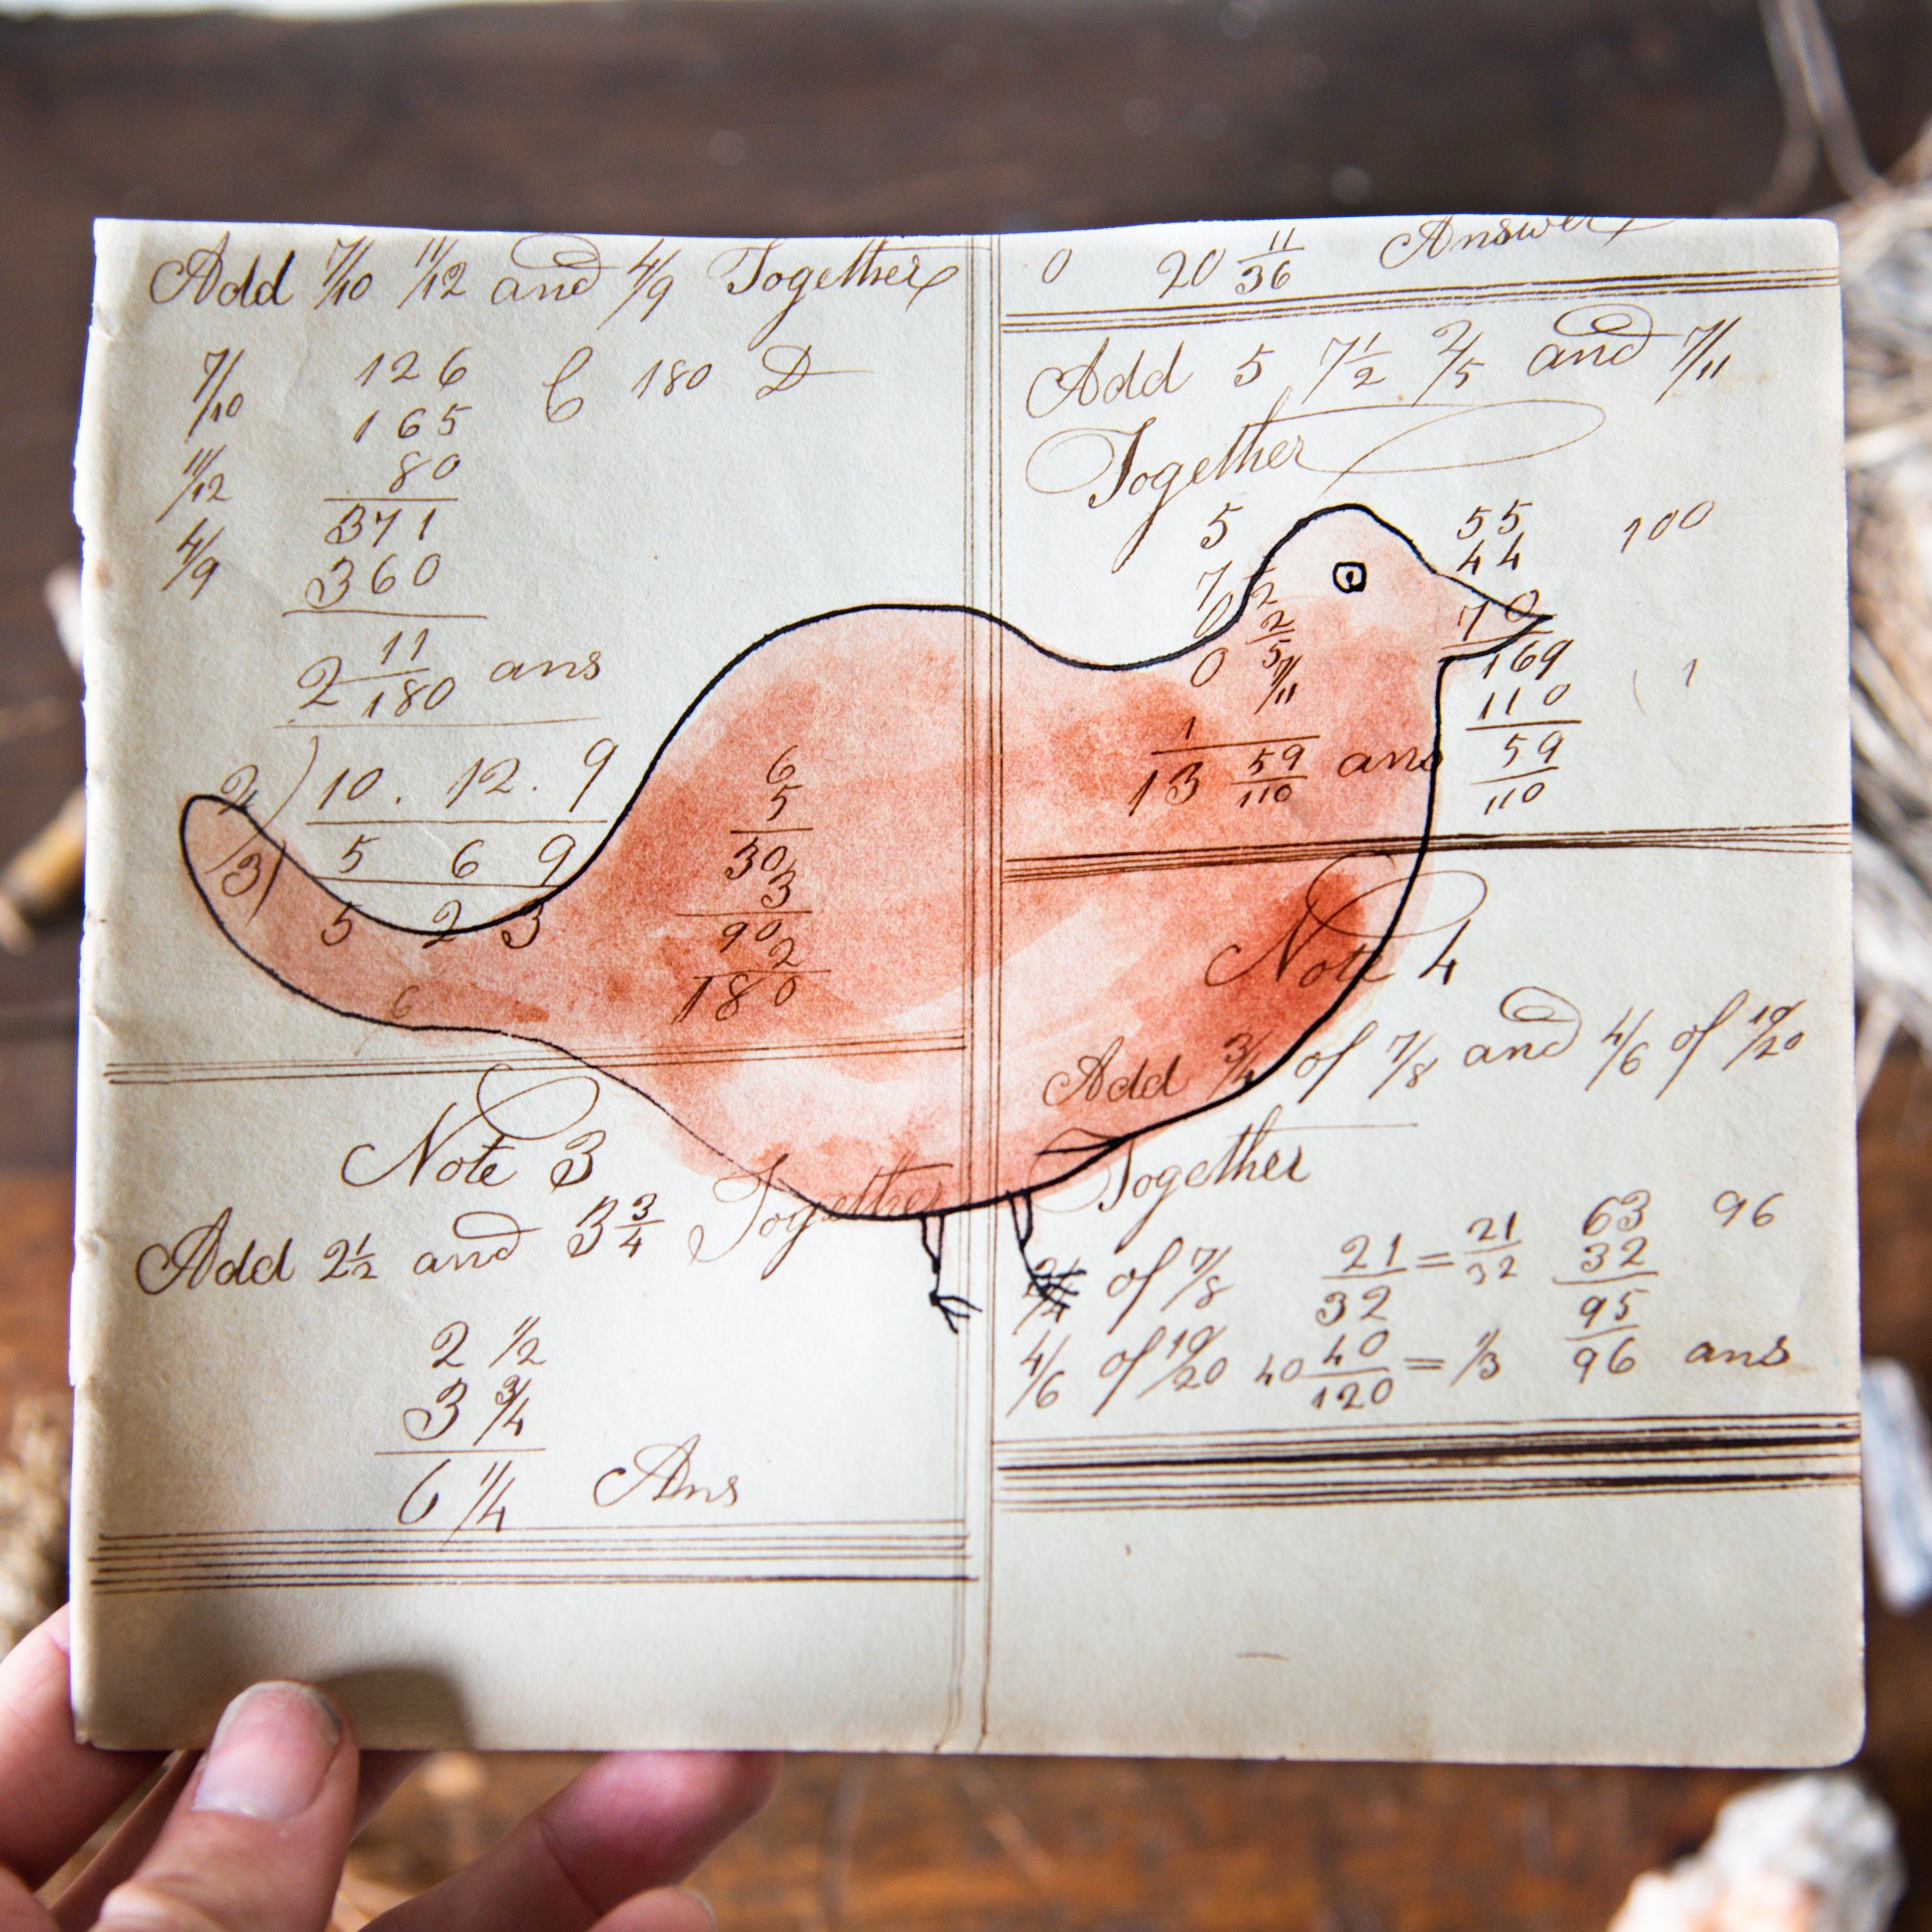 Add 7/10 11/12 and 4/9 Together
7/10 126 C 180 D
165
11/12 80
371
4/9 360
2 11/180 ans
2) 10 . 12 . 9
3) 5 6 9
5 2 3
6
6
5
30
3
90
2
180
Note 3
Add 2 1/2 and 3 3/4 Together
2 1/2
3 3/4
6 1/4 Ans
0 20 11/36 Answer
Add 5 7 1/2 2/5 and 7/11
Together
5 55 100
7 1/2 44
0 2/5 70
0 7/11 169 1
1 110
13 59/110 ans 59/110
Note 4
Add 3/4 of 7/8 and 4/6 of 10/20
Together
3/4 of 7/8 21/32 = 21/32 63 96
32
4/6 of 10/20 40 40/120 = 1/3 95/96 ans